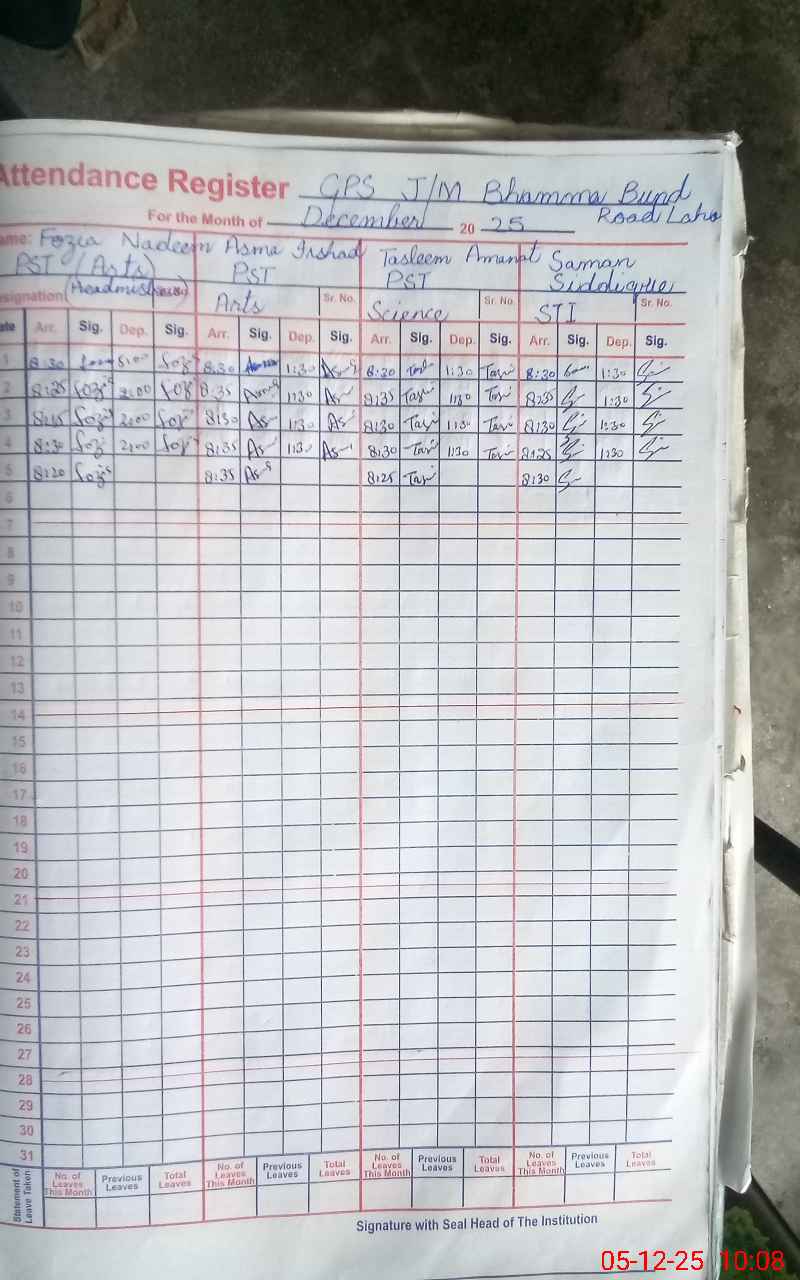 Attendance Register GPS J/M Bhamma Bund
For the Month of December 20 25 Road Laho
ame: Fozia Nadeem Asma Irshad Tasleem Amanat Saman
PST (Arts) PST PST Siddique
esignation (Headmistress) Arts Sr. No. Science Sr. No. STI Sr. No.
ate Arr. Sig. Dep. Sig. Arr. Sig. Dep. Sig. Arr. Sig. Dep. Sig. Arr. Sig. Dep. Sig.
1 8:30 8:30 1:30 8:30 1:30 8:30 1:30
2 8:25 2:00 8:35 1:30 8:35 1:30 8:35 1:30
3 2:00 8:30 1:30 8:30 1:30 8:30 1:30
4 8:30 2:00 8:35 1:30 8:30 1:30 8:25 1:30
5 8:20 8:35 8:25 8:30
6
7
8
9
10
11
12
13
14
15
16
17
18
19
20
21
22
23
24
25
26
27
28
29
30
31
Statement of Leave Taken No. of Leaves This Month Previous Leaves Total Leaves No. of Leaves This Month Previous Leaves Total Leaves No. of Leaves This Month Previous Leaves Total Leaves No. of Leaves This Month Previous Leaves Total Leaves
Signature with Seal Head of The Institution
05-12-25 10:08